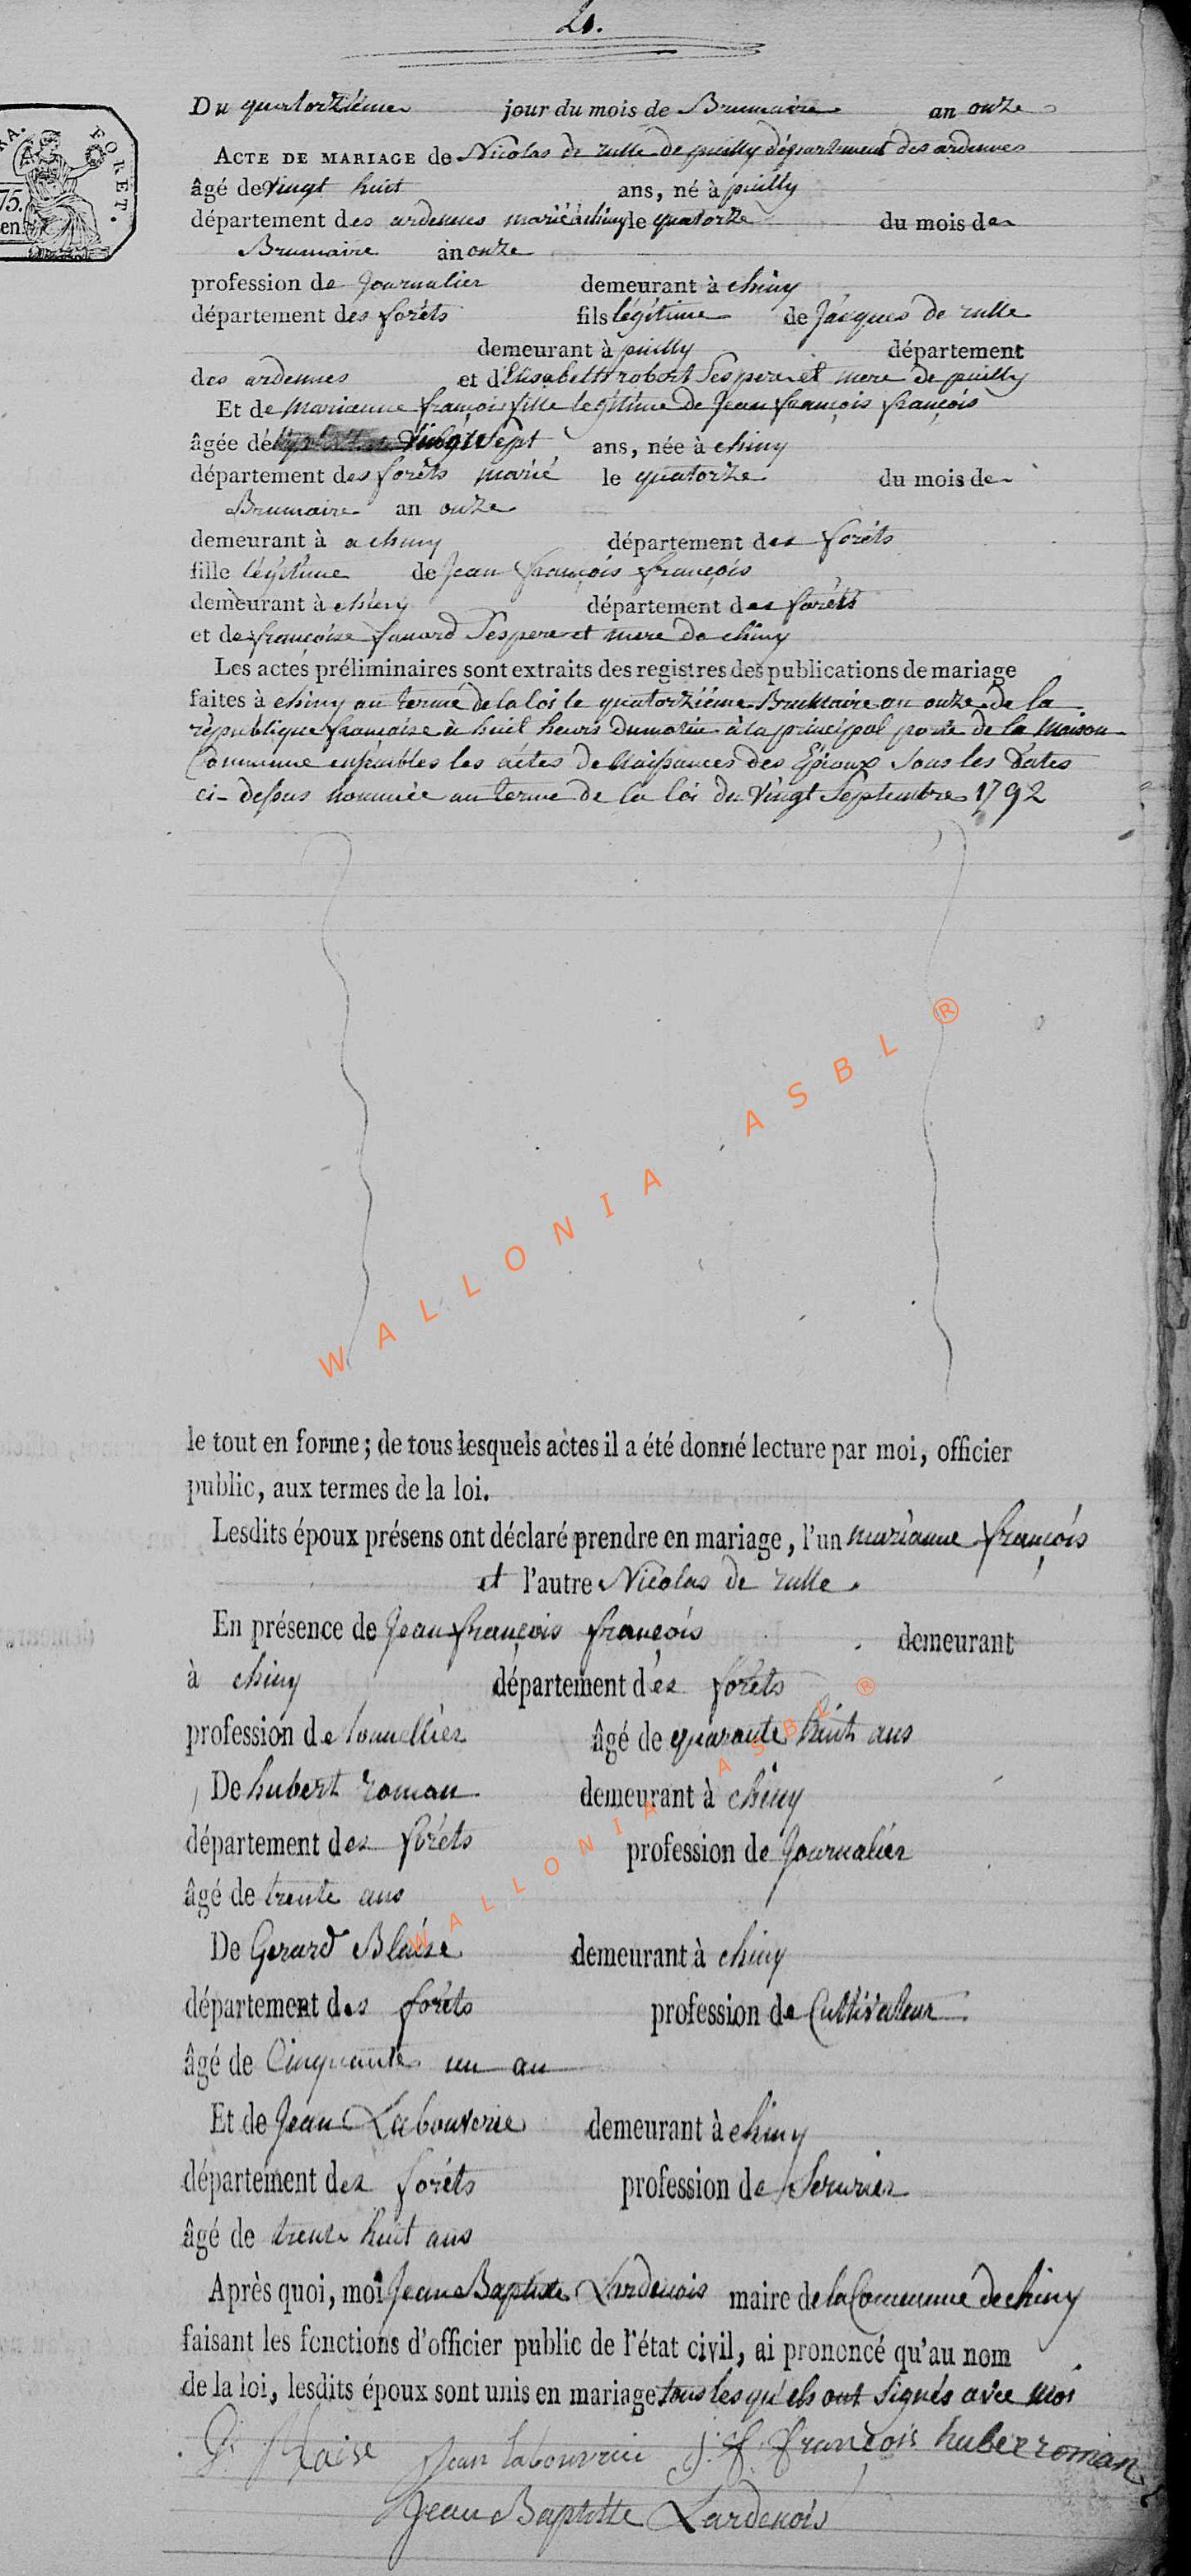 20.
Du quatorziéme jour du mois de Brumaire an onze
ACTE DE MARIAGE de Nicolas de rulle de puilly département des ardennes
âgé de vingt huit ans, né à puilly
département des ardennes marié à chiny le quatorze du mois de
Brumaire an onze
profession de Journalier demeurant à chiny
département des foréts fils légitime de Jacques de rulle
demeurant à puilly département
des ardennes et d'Elisabeth robert Ses pere et mere de puilly
Et de Marianne françois fille legitime de Jean françois françois
âgée de Vingt Sept ans, née à chiny
département des foréts marié le quatorze du mois de
Brumaire an onze
demeurant à a chiny département des foréts
fille légitime de Jean françois françois
demeurant à chiny département des foréts
et de françoise Ses pere et mere de chiny
Les actes préliminaires sont extraits des registres des publications de mariage
faites à chiny au terme de la loi le quatorziéme Brumaire an onze de la
république françoise à huit heurs du matin à la principal porte de la Maison
Commune les actes de Naissances des Epoux Sous les Dates
ci-dessus nommée au terme de la loi du Vingt Septembre 1792
WALLONIA ASBL ®
le tout en forme; de tous lesquels actes il a été donné lecture par moi, officier
public, aux termes de la loi.
Lesdits époux présens ont déclaré prendre en mariage, l'un marianne françois
et l'autre Nicolas de rulle.
En présence de Jean françois françois demeurant
à chiny département des foréts
profession de tonnellier âgé de quarante huit ans
De hubert roman demeurant à chiny
département des foréts profession de Journalier
âgé de trente ans
De Gerard Blaise demeurant à chiny
département des foréts profession de Cultivateur
âgé de Cinquante un an
Et de Jean Labouverie demeurant à chiny
département des foréts profession de Serurier
âgé de trente huit ans
WALLONIA ASBL ®
Après quoi, moi Jean Baptiste Lardenois maire de la Commune de chiny
faisant les fonctions d'officier public de l'état civil, ai prononcé qu'au nom
de la loi, lesdits époux sont unis en mariage tous les qu'els ont Signés avec Moi
G. Blaise Jean labouverie J. f. françois huber roman
Jean Baptiste Lardenois